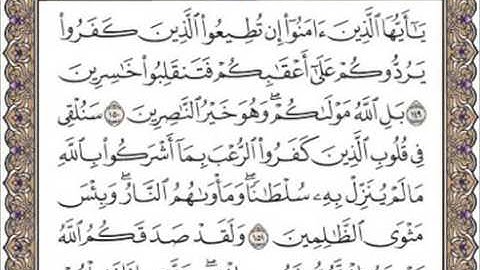 يَٰٓأَيُّهَا ٱلَّذِينَ ءَامَنُوٓا۟ إِن تُطِيعُوا۟ ٱلَّذِينَ كَفَرُوا۟
يَرُدُّوكُمْ عَلَىٰٓ أَعْقَٰبِكُمْ فَتَنقَلِبُوا۟ خَٰسِرِينَ
١٤٩ بَلِ ٱللَّهُ مَوْلَىٰكُمْ ۖ وَهُوَ خَيْرُ ٱلنَّٰصِرِينَ ١٥٠ سَنُلْقِى
فِى قُلُوبِ ٱلَّذِينَ كَفَرُوا۟ ٱلرُّعْبَ بِمَآ أَشْرَكُوا۟ بِٱللَّهِ
مَا لَمْ يُنَزِّلْ بِهِۦ سُلْطَٰنًا ۖ وَمَأْوَىٰهُمُ ٱلنَّارُ ۚ وَبِئْسَ
مَثْوَى ٱلظَّٰلِمِينَ ١٥١ وَلَقَدْ صَدَقَكُمُ ٱللَّهُ